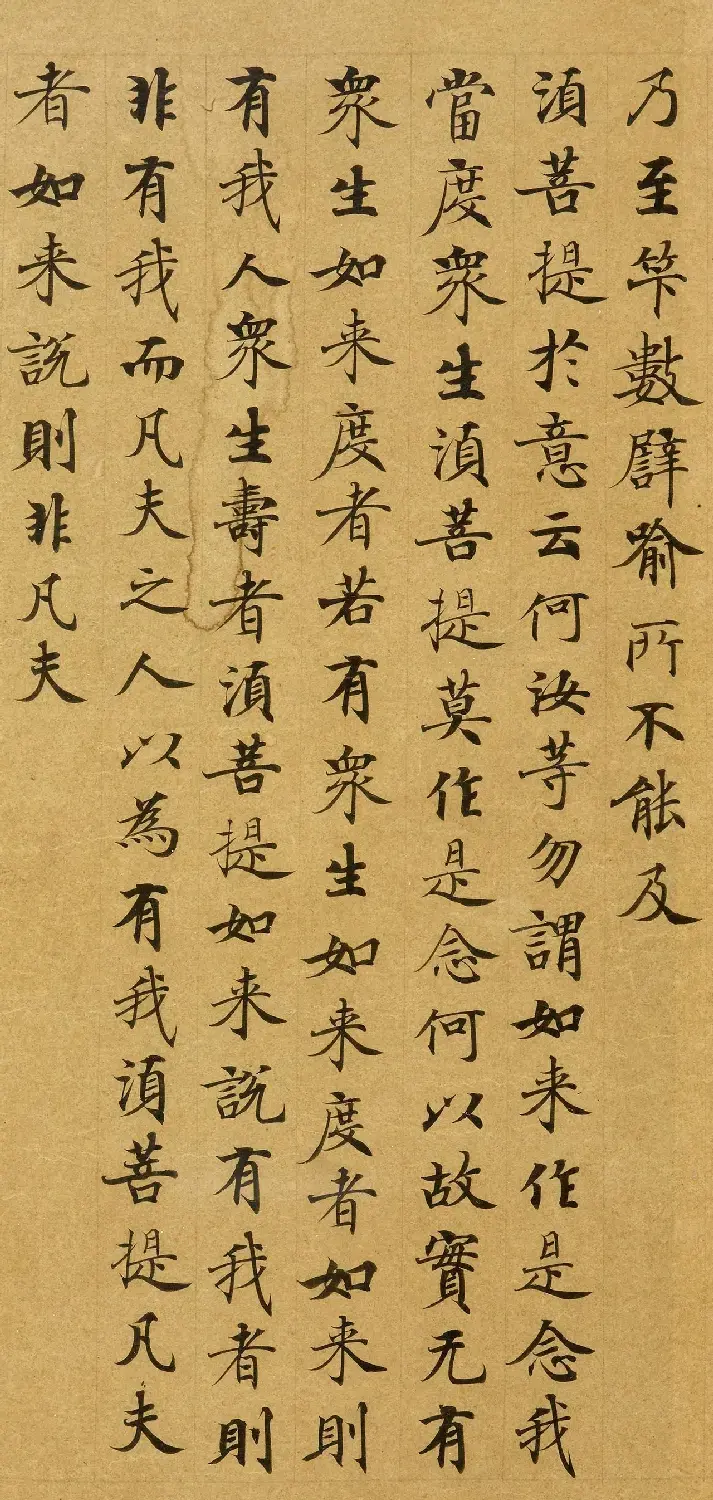 乃至笇數譬喻所不能及
湏菩提於意云何汝等勿謂如来作是念我
當度衆生湏菩提莫作是念何以故實无有
衆生如来度者若有衆生如来度者如来則
有我人衆生壽者湏菩提如来說有我者則
非有我而凡夫之人以為有我湏菩提凡夫
者如来說則非凡夫